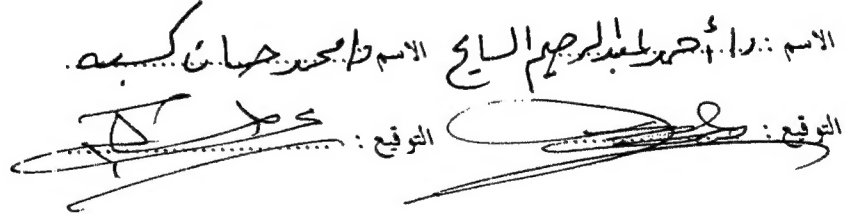 الاسم : د/ أحمد عبد الرحيم السايح الاسم د/ محمد حسان كسبه
التوقيع : التوقيع :